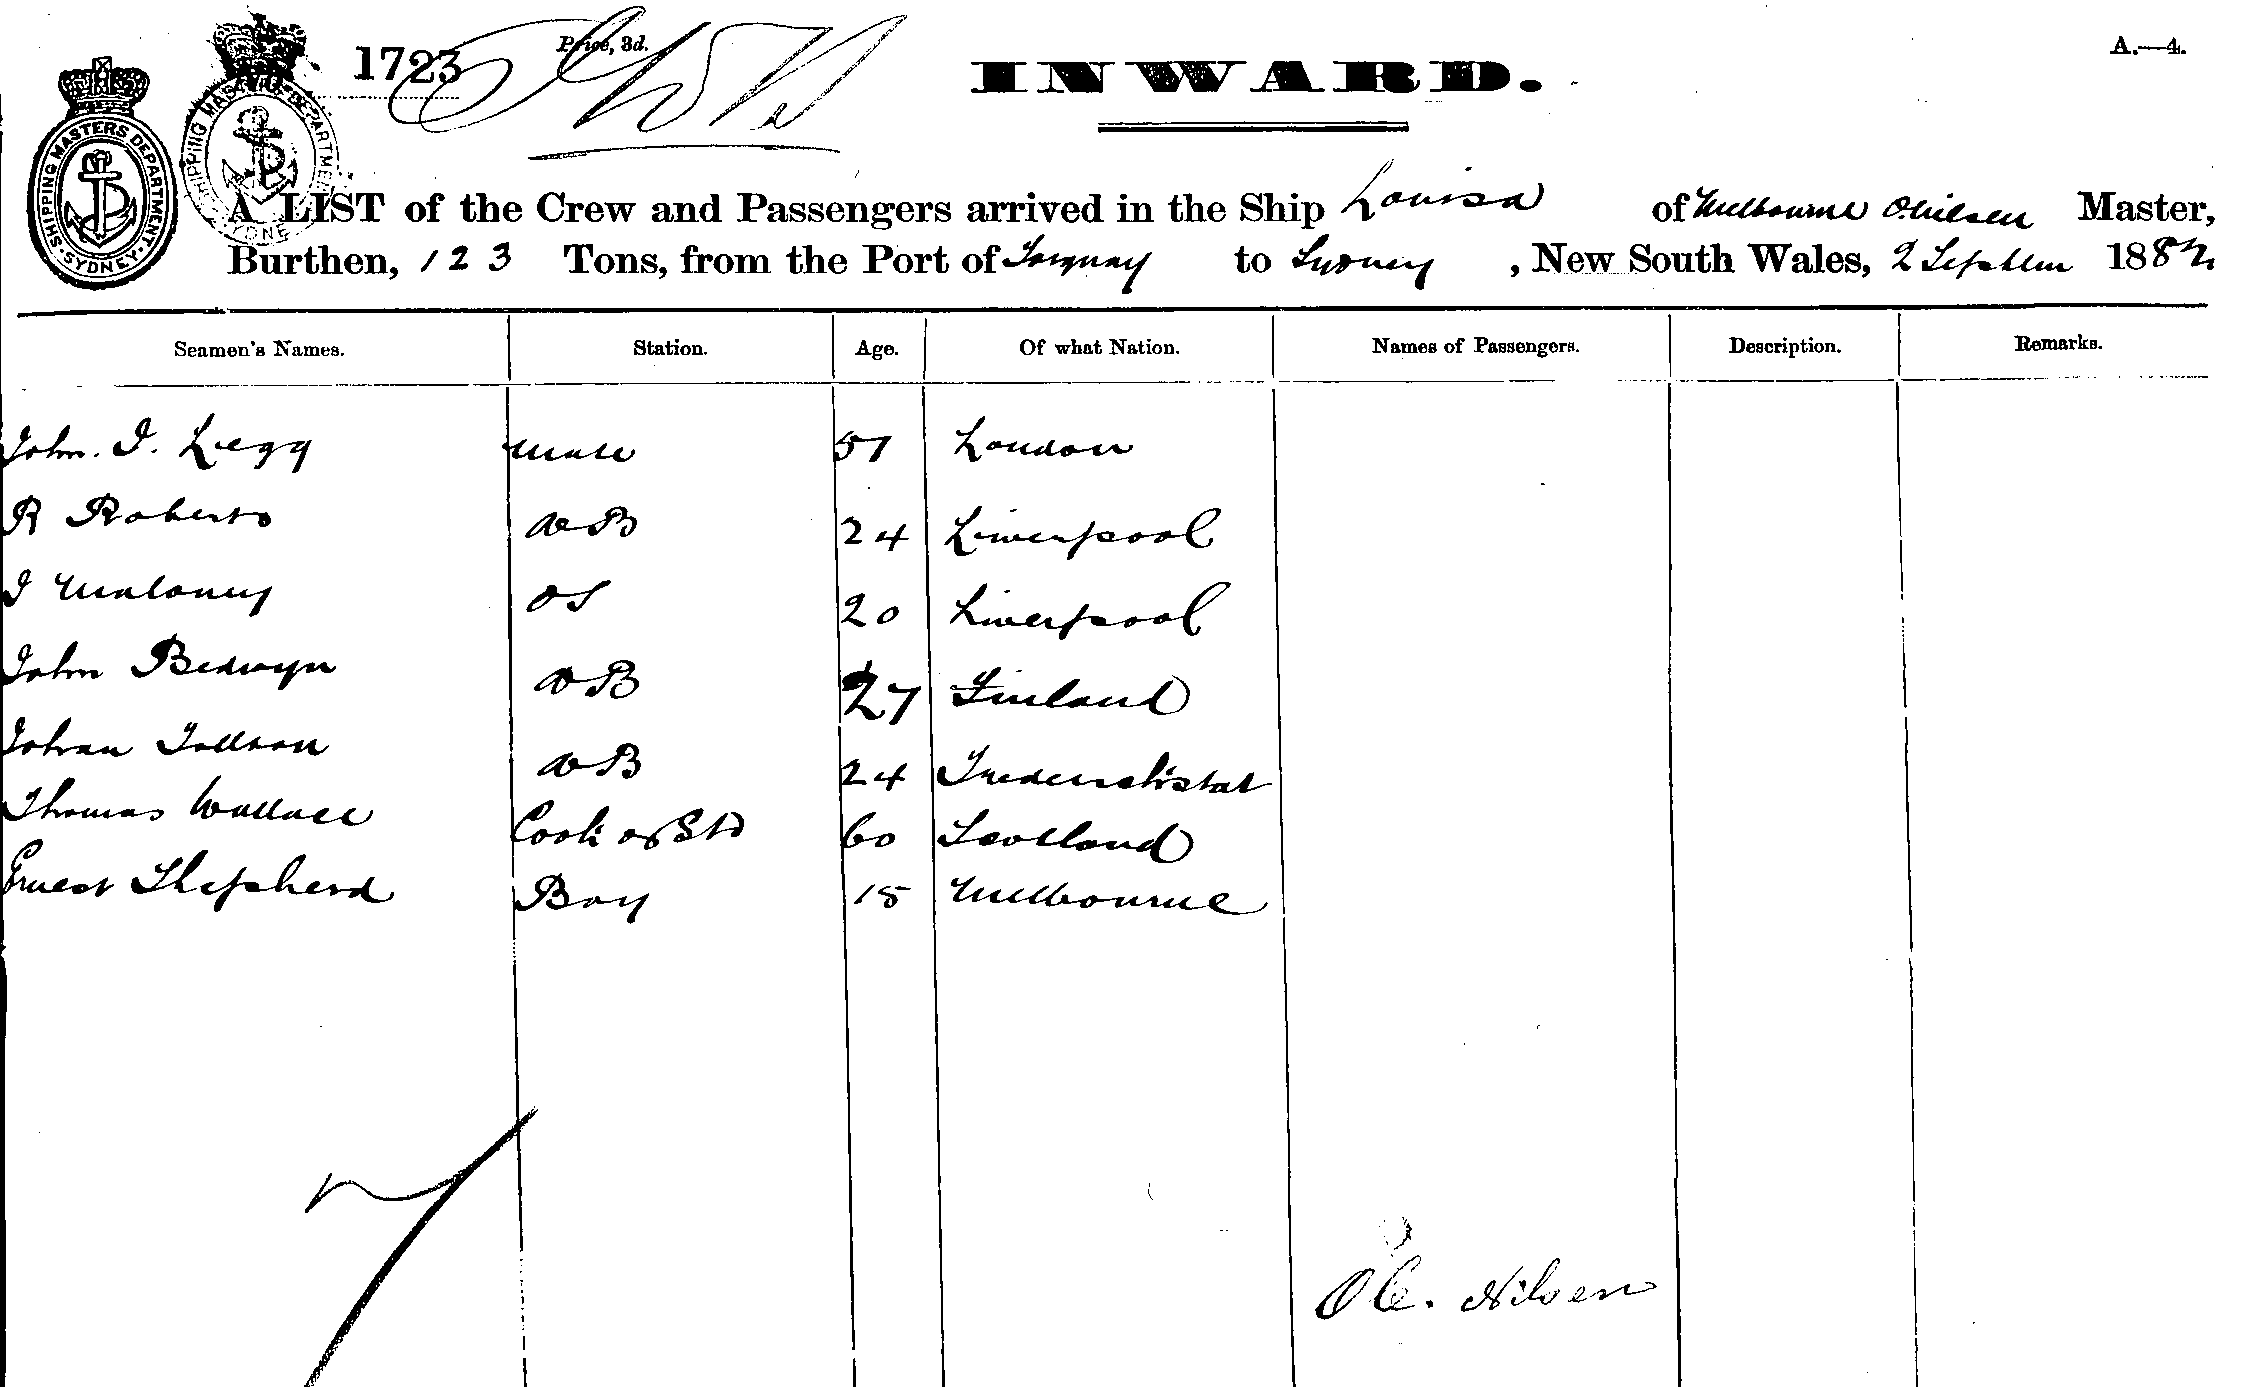 1723
Price, 3d.
INWARD.
A.—4.
SHIPPING MASTERS DEPARTMENT. SYDNEY.
SHIPPING MASTERS DEPARTMENT SYDNEY
A LIST of the Crew and Passengers arrived in the Ship Louisa of Melbourne O Nilsen Master,
Burthen, 123 Tons, from the Port of Torquay to Sydney, New South Wales, 2 September 188
Seamen's Names. Station. Age. Of what Nation. Names of Passengers. Description. Remarks.
John. I. Legg Mate 51 London
R Roberts AB 24 Liverpool
I Maloney OS 20 Liverpool
John Bedwyn AB 27 Finland
Johan AB 24 Frederickstat
Thomas Wallace Cook & Std 60 Scotland
Ernest Shepherd Boy 15 Melbourne
O C. Nilsen